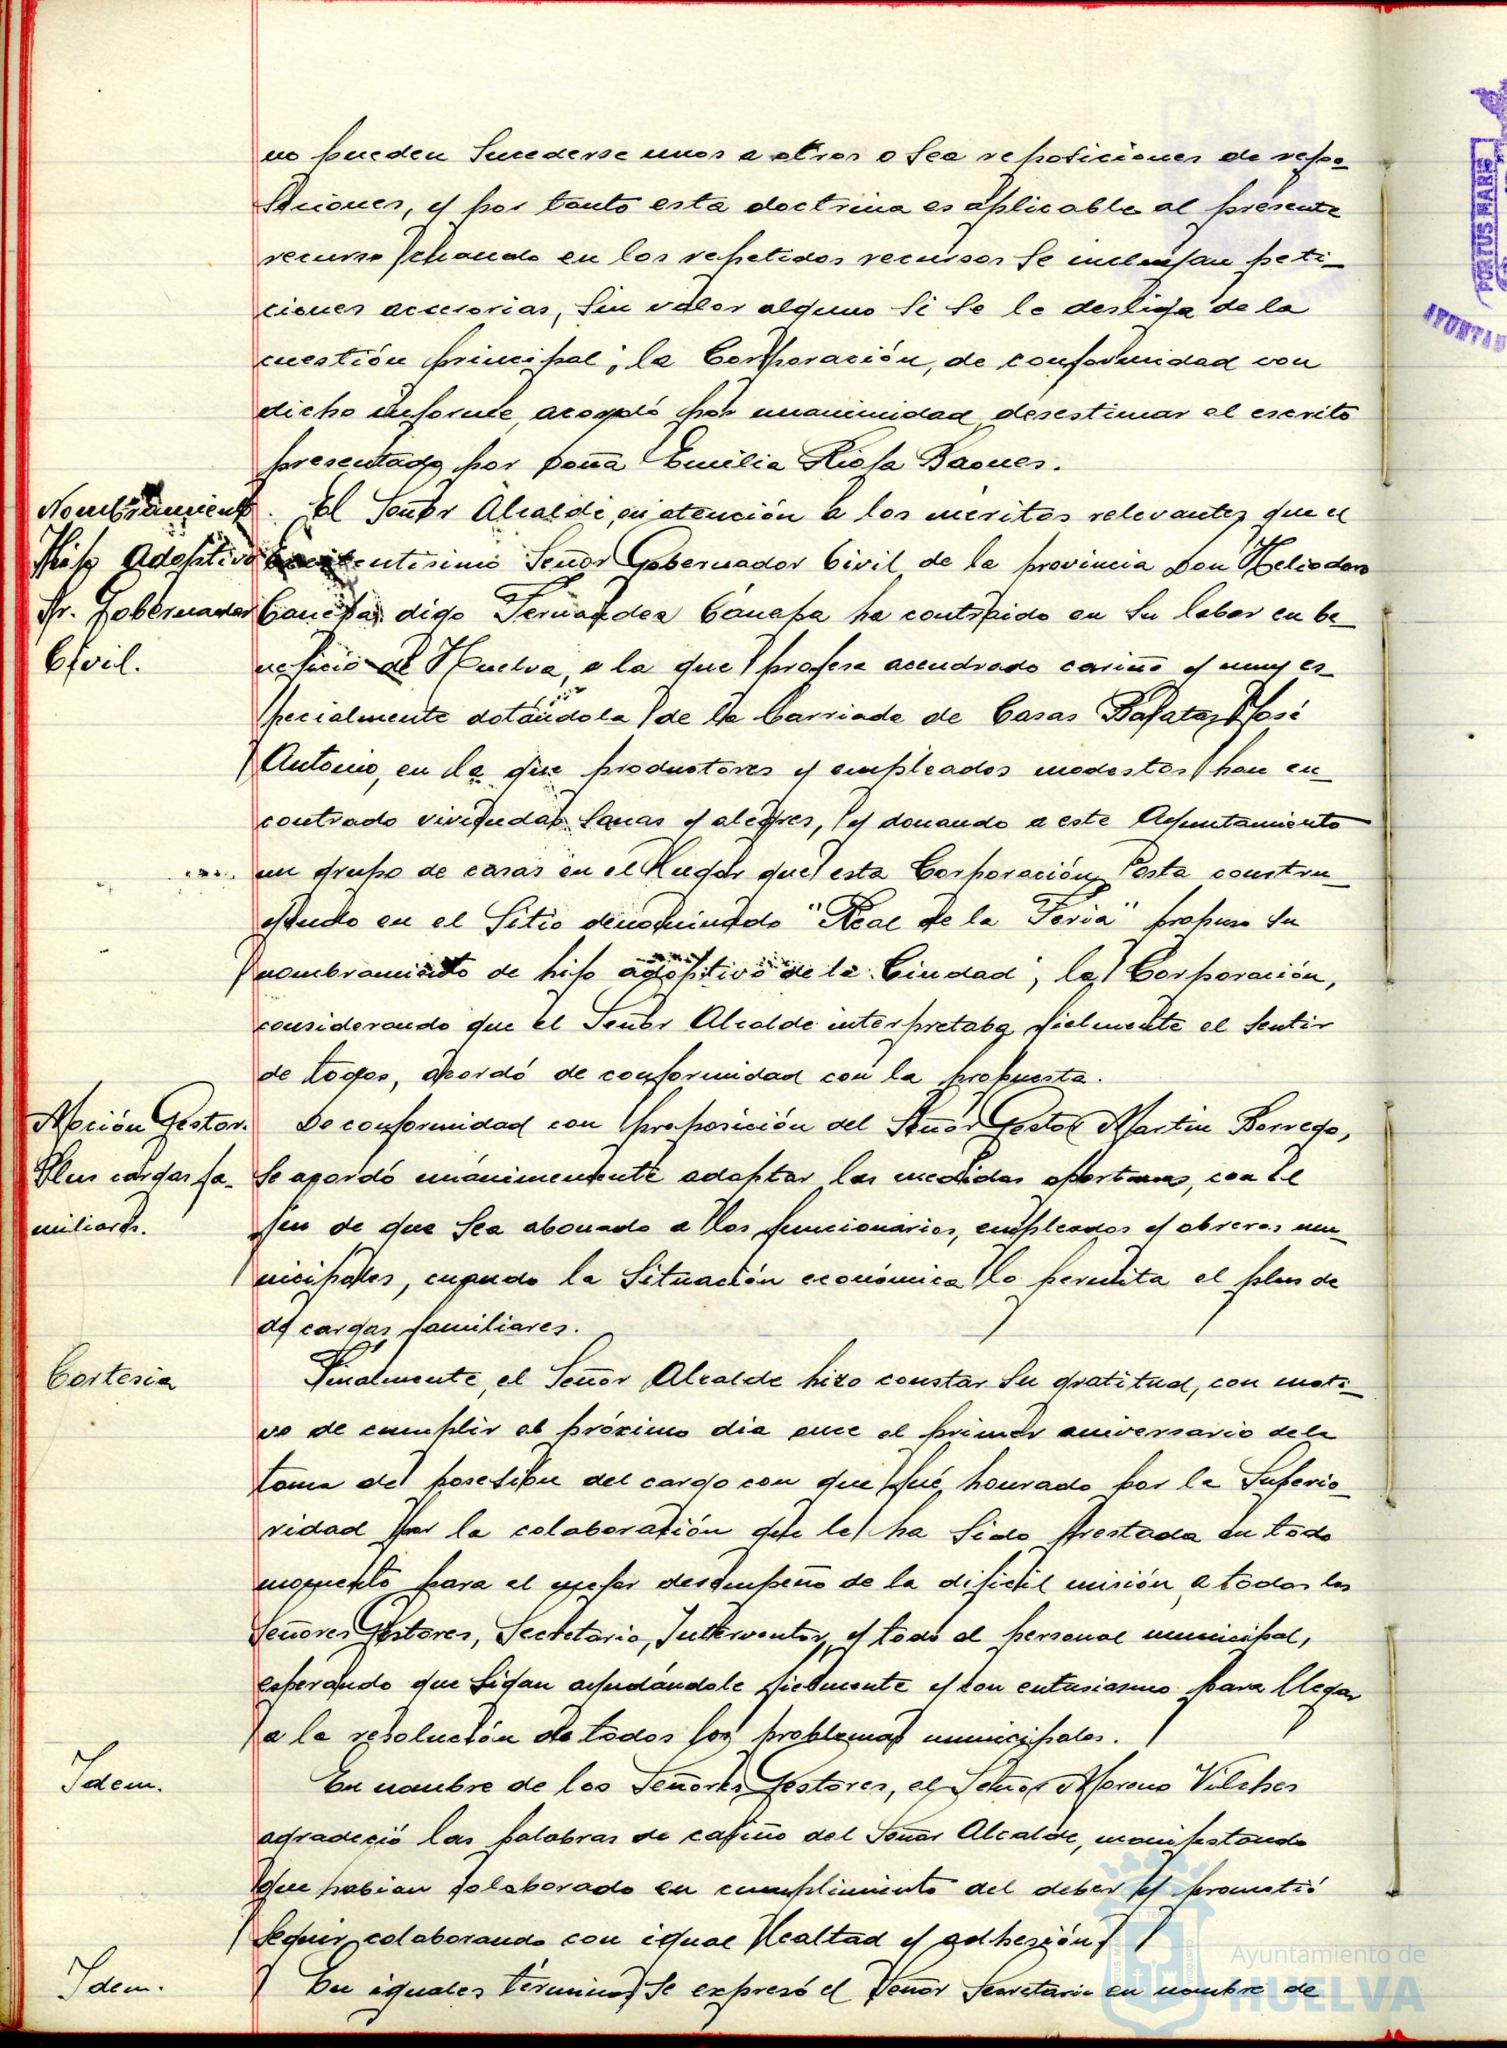 no pueden sucederse unos a otros o sea reposiciones de repo-
siciones, y por tanto esta doctrina es aplicable al presente
recurso cuando en los repetidos recursos se incluyan peti-
ciones accesorias, sin valor alguno si se le desliga de la
cuestión principal; la Corporación, de conformidad con
dicho informe, acordó por unanimidad desestimar el escrito
presentado por Doña Emilia Rioja Baones.
Nombramiento
Hijo Adoptivo
Sr. Gobernador
Civil.
El Señor Alcalde, en atención a los méritos relevantes que el
Excelentísimo Señor Gobernador Civil de la provincia Don Heliodoro
Canepa digo Fernandez Cánepa ha contraido en su labor en be-
neficio de Huelva, a la que profesa acendrado cariño y muy es-
pecialmente dotándola de la barriada de Casas Baratas José
Antonio, en la que productores y empleados modestos han en-
contrado viviendas sanas y alegres, y donando a este Ayuntamiento
un grupo de casas en el lugar que esta Corporación esta constru-
yendo en el sitio denominado "Real de la Feria" propuso su
nombramiento de hijo adoptivo de la Ciudad; la Corporación,
considerando que el Señor Alcalde interpretaba fielmente el sentir
de todos, acordó de conformidad con la propuesta.
Moción Gestor.
Plus cargas fa-
miliares.
De conformidad con proposición del Señor Gestor Martin Borrego,
se acordó unánimemente adoptar las medidas oportunas, con el
fin de que sea abonado a los funcionarios, empleados y obreros mu-
nicipales, cuando la situación económica lo permita el plus de
de cargas familiares.
Cortesia
Finalmente, el Señor Alcalde hizo constar su gratitud, con moti-
vo de cumplir el próximo dia once el primer aniversario de la
toma de posesión del cargo con que fué honrado por la Superio-
ridad por la colaboración que le ha sido prestada en todo
momento para el mejor desempeño de la dificil misión, a todos los
Señores Gestores, Secretario, Interventor, y todo el personal municipal,
esperando que sigan ayudándole fielmente y con entusiasmo para llegar
a la resolución de todos los problemas municipales.
Idem.
En nombre de los Señores Gestores, el Señor Moreno Vilches
agradeció las palabras de cariño del Señor Alcalde, manifestando
que habian colaborado en cumplimiento del deber y prometió
seguir colaborando con igual lealtad y adhesión.
Idem.
En iguales términos se expresó el Señor Secretario en nombre de
PORTUS MARIS
AYUNTAM
Ayuntamiento de
HUELVA